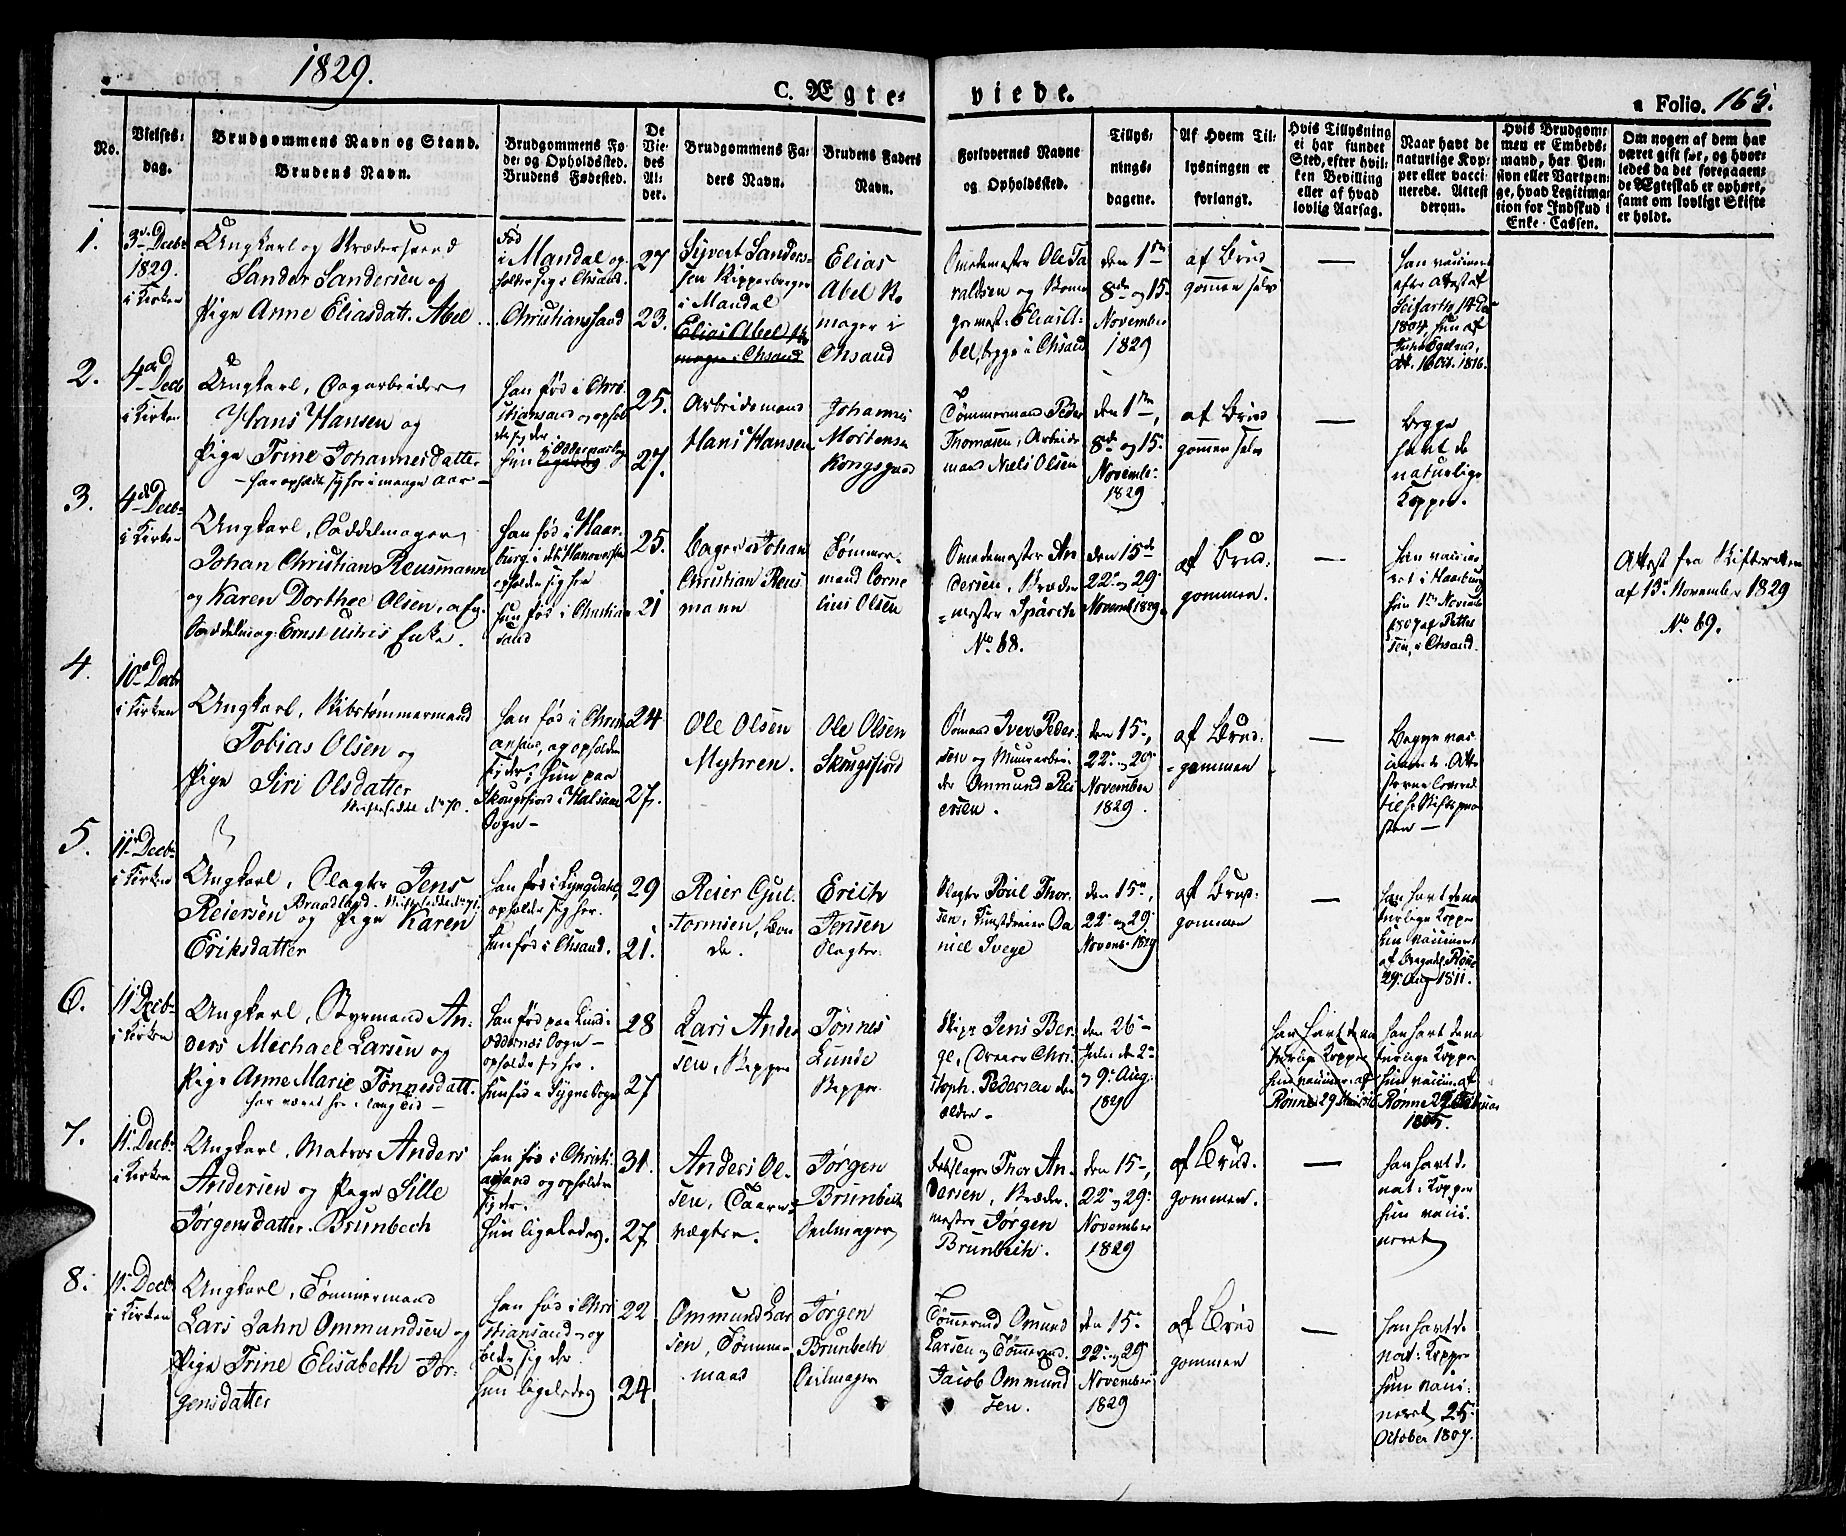 1829.
C. Ægte-
viede.
a Folio. 165.
No.
Vielses-
dag.
Brudgommens Navn og Stand.
Brudens Navn.
Brudgommens Fø-
de- og Opholdssted.
Brudens Fødested.
De
Vie-
des
Al-
der.
Brudgommens Fa-
ders Navn.
Brudens Faders
Navn.
Forlovernes Navne
og Opholdssted.
Tillys-
nings-
dagene.
Af Hvem Til-
lysningen er
forlangt.
Hvis Tillysning
ei har fundet
Sted, efter hvil-
ken Bevilling
eller af hvad
lovlig Aarsag.
Naar havt de
naturlige Kop-
per eller vacci-
nerede. Attest
derom.
Hvis Brudgom-
men er Embeds-
mand, har Pen-
sion eller Vartpen-
ge, hvad Legitima-
tion for Indskud i
Enke-Cassen.
Om nogen af dem har
været gift før, og hvor-
ledes da det foregaaen-
de Ægteskab er ophørt,
samt om lovligt Skifte
er holdt.
1.
3de Decbr
1829.
i Kirken
Ungkarl og Skrædersvend
Sander Sandersen og
Pige Anne Eliasdatt. Abel
Fød
i Mandal og
holder sig i Chsand.
Christianssand
27
23.
Syvert Sanders-
sen
i Mandal
Elias Abel
mager i Chsand
Elias
Abel
mager i
Chsand
Smedemester Ole Ta
raldsen og
Elias A-
bel, begge i Chsand
den 1ste
8de og 15.
November
1829
af Brud
gommen selv
—
han vaccineret
efter Attest af
Seifarth, 14 Dec
1804, hun af
16 Oct. 1816.
2.
4de
Decb
i Kirken
Ungkarl, Dagarbeider
Hans Hansen og
Pige Trine Johannesdatter
– har opholdt sig her i mange Aar –
han fød i Chri-
stiansand og ophol
de sig der
i Oddernæs sogn
hun ligeledes
25.
27.
Arbeidsmand
Hans Hansen
Johannes
Mortensen
Kongsgaard
Tømmermand Peder
Thomasen, Arbeids
mand Niels Olsen
den 1ste,
8de og 15.
Novemb:
1829
af Brud
gommen selv
—
begge
havt de
naturlige
Kopper.
3.
4de Decb.
i Kirken
Ungkarl, Saddelmager
Johan Christian Reusmann
og Karen Dorthee Olsen, afg.
Saddelmag: Ernst Ulriks Enke.
han fød i Haar-
burg i det Hanoverske
opholder sig her
hun fød i Christian
sand
25.
21
Bager Johan
Christian Reus
mann
Tømmer-
mand Corne
lius Olsen
Smedemester An
dersen, Skræder
=mester Spärck
No. 68.
den 15de
22. og 29.
Novemb 1829.
af Brud-
gommen.
—
han vaccine
ret i Haarburg
hun 1ste Novemb
1807 af Petter
sen, i Chsand.
Attest fra Skifteretten
af 13. November 1829
No. 69.
4.
10de Decb
i Kirken
Ungkarl, Skibstømmermand
Tobias Olsen og
Pige Siri Olsdatter
Skifteseddel No 70.
han fød i Christi
ansand, og opholder
sig der, hun paa
Skougsfiord i Halsaae
Sogn –
24
27.
Ole Olsen
Myhren.
Ole Olsen
Skougsfiord
Sømand Iver Peder-
sen og Muurarbei-
der Ommund Rei
ersen.
den 15,
22. og 29.
November
1829.
af Brud-
=gommen
—
Begge vac
cinerede. Atte
sterne leverede
til H. Stiftsprov
sten –
5.
11. Decb.
i Kirken
Ungkarl, Slagter Jens
Reiersen Braadland. Skifteseddel No 71.
og Pige Karen
Eriksdatter
han fød i Lyngdahl,
opholder sig her.
hun fød i Chsand.
29
21.
Reier Gut-
tormsen, Bon
de.
Erich
Jensen
Slagter.
Slagter Poul Thor-
sen, Kunstdreier Da
niel Svege
den 15.
22. og 29.
Novemb. 1829
af Brud-
gommen
—
han havt de na
turlige Kopper
hun vaccineret
af Rønne
29. Aug 1811.
6.
11 Decb.
i Kirken
Ungkarl, Styrmand An-
ders Mechael Larsen og
Pige Anne Marie Tønnesdatt.
har været her i lang Tid –
han fød paa Lund i
Oddernæs Sogn –
opholder sig her.
hun fød i Søgne Sogn
28
27
Lars Ander
sen, Skipper
Tønnes
Lunde
Skipper.
Skipr Jens Ber-
ge, Chri
stoph. Pedersen den
ældre –
den 26–
Julii de 2.
og 9. Aug:
1829
han havt de na
turlige Kopper
hun vaccineret af
Rønne 29
han havt de na
turlige Kopper
hun vaccin. af
Rønne 29
1805.
7.
11. Decb.
i Kirken
Ungkarl, Matros Anders
Andersen og Pige Sille
Jørgensdatter. Brunbech
han fød i Christi
ansand og opholder
sig der.
hun ligeledes.
31.
27.
Anders Ol-
sen, Taarn-
vægter.
Jørgen
Brunbech
Seilmager
Thor An-
dersen, Skræder
mester Jørgen
Brunbech.
den 15–,
22. og 29.
November
1829
af Brud-
gommen.
—
han havt de
nat: Kopper
hun vacci-
neret
8.
11. Decb.
i Kirken
Ungkarl, Tømmermand
Lars Jahn Ommundsen og
Pige Trine Elisabeth Jør-
gensdatter
han fød i Chri
stiansand – og
holder sig der.
hun ligeledes
22
24
Ommund Lar
sen, Tømmer-
mand
Jørgen
Brunbech
Seilmager
Tømmermd Omund
Larsen og Tømmermd.
Jacob Ommund
sen.
den 15.
22. og 29
November
1829
af Brud
gommen
—
han havt de
nat: Kopper
hun vacci-
neret 25.
October 1807.